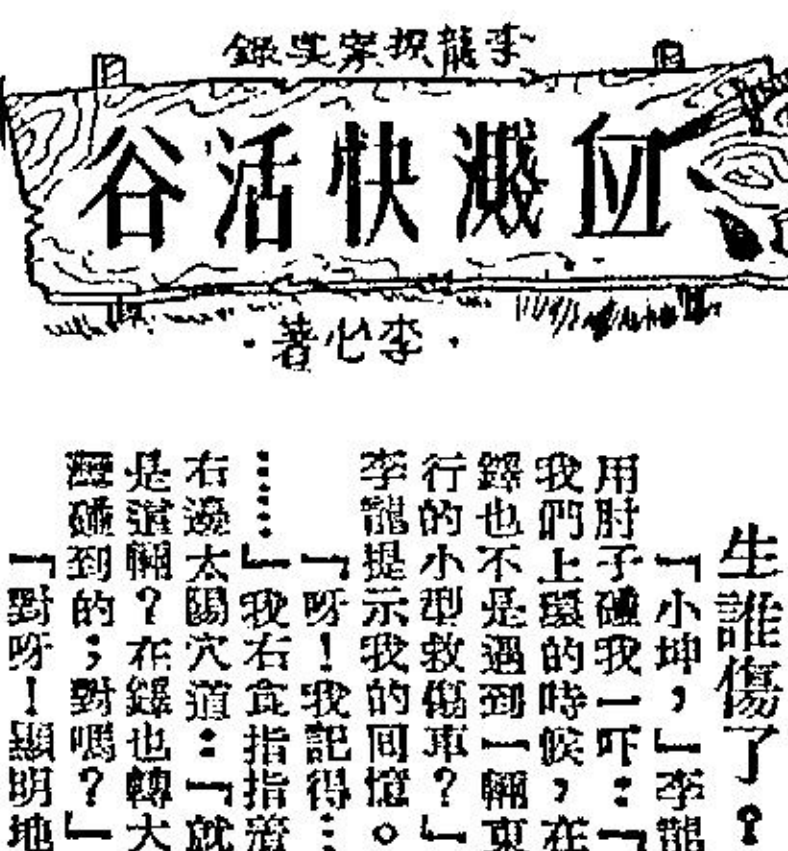 李龍探案奘錄
血濺快活谷
·李心著·
生誰傷了?
「小坤,」李龍
用肘子碰我一吓:「
我們上環的時候,在
鐸也不是遇到一輛東
行的小型救傷車?」
李龍提示我的回憶。
「呀!我記得⋯
⋯⋯」我右食指指着
右邊太陽穴道:「就
是這輛?在鐸也轉大
碰到的;對嗎?」
「對呀!顯明地